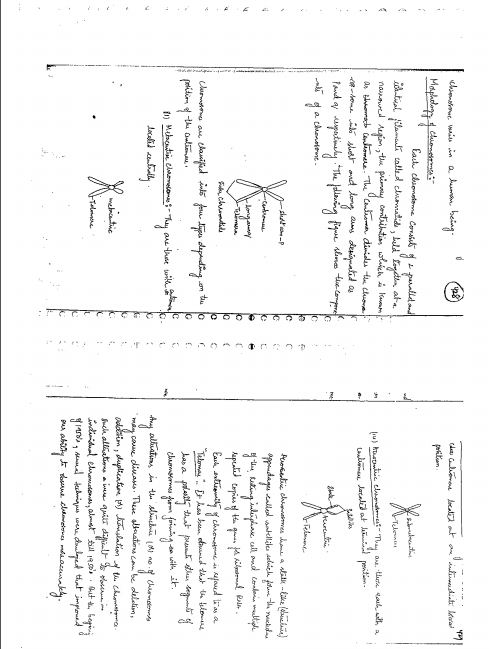 chromosome varies in a human being.
428
Morphology of chromosomes:-
Each chromosome consists of 2 parallel and
identical filaments called chromatids, held together at a
narrowed region, the primary constriction which is known
as centromere. The centromere divides the chromo
-some into short and long arms designated as
p and q respectively. The following figure shows the compo
nents of a chromosome.
short arm-P
centromere
long arm-q
Telomere
Sister chromatids
Chromosomes are classified into four types depending on the
position of the centromere.
(i) Metacentric chromosome:- They are those with
located centrally
metacentric
Telomere
429
the centromere located at an intermediate
position.
Telomere
(iv) chromosome:- They are those each with a
centromere located at terminal position.
satellite
stalk
Telomere
Acrocentric chromosomes have a stalk-like (structure)
appendages called satellites which form the nucleolus
of the resting interphase cell and contain multiple
repeated copies of the genes for ribosomal RNA.
Each extremity of chromosome is referred to as a
"Telomere". It has been observed that the telomere
has a polarity that prevents other segments of
chromosomes from joining with it.
Any alterations in the structure (or) no of chromosomes
may cause diseases. These alterations can be deletion,
addition, duplication (or) translocation of the chromosome.
Such alterations were quite difficult to observe in
individual chromosomes, almost till 1950's. But the beginning
of 1950's, several techniques were developed that improved
our ability to observe chromosomes more accurately.